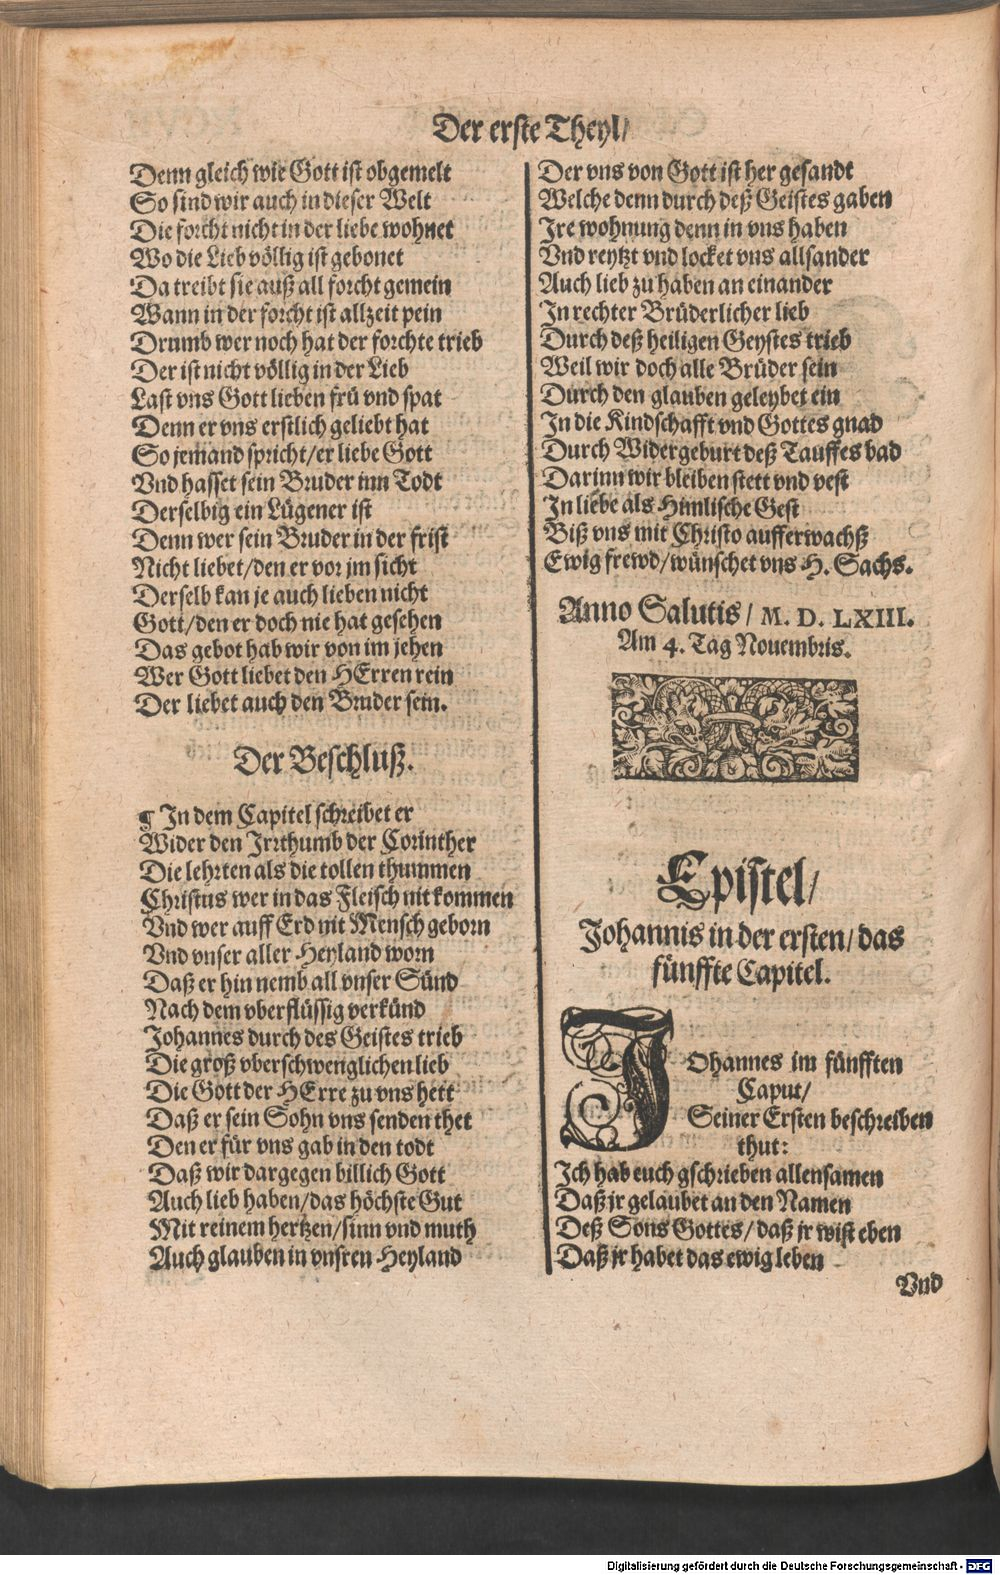 Der erste Theyl/
Denn gleich wie Gott ist obgemelt
So sind wir auch in dieser Welt
Die forcht nicht in der liebe wohnet
Wo die Lieb völlig ist gebonet
Da treibt sie auß all forcht gemein
Wann in der forcht ist allzeit pein
Drumb wer noch hat der forchte trieb
Der ist nicht völlig in der Lieb
Last vns Gott lieben frü vnd spat
Denn er vns erstlich geliebt hat
So jemand spricht/er liebe Gott
Vnd hasset sein Bruder inn Todt
Derselbig ein Lügener ist
Denn wer sein Bruder in der frist
Nicht liebet/den er vor jm sicht
Derselb kan je auch lieben nicht
Gott/den er doch nie hat gesehen
Das gebot hab wir von im jehen
Wer Gott liebet den HErren rein
Der liebet auch den Bruder sein.
Der Beschluß.
¶ In dem Capitel schreibet er
Wider den Irrthumb der Corinther
Die lehrten als die tollen thummen
Christus wer in das Fleisch nit kommen
Vnd wer auff Erd nit Mensch geborn
Vnd vnser aller Heyland worn
Daß er hin nemb all vnser Sünd
Nach dem vberflüssig verkünd
Johannes durch des Geistes trieb
Die groß vberschwenglichen lieb
Die Gott der HErre zu vns hett
Daß er sein Sohn vns senden thet
Den er für vns gab in den todt
Daß wir dargegen billich Gott
Auch lieb haben/das höchste Gut
Mit reinem hertzen/sinn vnd muth
Auch glauben in vnsren Heyland
Der vns von Gott ist her gesandt
Welche denn durch deß Geistes gaben
Ire wohnung denn in vns haben
Vnd reytzt vnd locket vns allsander
Auch lieb zu haben an einander
In rechter Brüderlicher lieb
Durch deß heiligen Geystes trieb
Weil wir doch alle Brüder sein
Durch den glauben geleybet ein
In die Kindschafft vnd Gottes gnad
Durch Widergeburt deß Tauffes bad
Darinn wir bleiben stett vnd vest
In liebe als Himlische Gest
Biß vns mit Christo aufferwachß
Ewig frewd/wünschet vns H. Sachs.
Anno Salutis/ M. D. LXIII.
Am 4. Tag Nouembris.
Epistel/
Johannis in der ersten/das
fünffte Capitel.
JOhannes im fünfften
Caput/
Seiner Ersten beschreiben
thut:
Ich hab euch gschrieben allensamen
Daß jr gelaubet an den Namen
Deß Sons Gottes/daß jr wist eben
Daß jr habet das ewig leben
Vnd
Digitalisierung gefördert durch die Deutsche Forschungsgemeinschaft - DFG